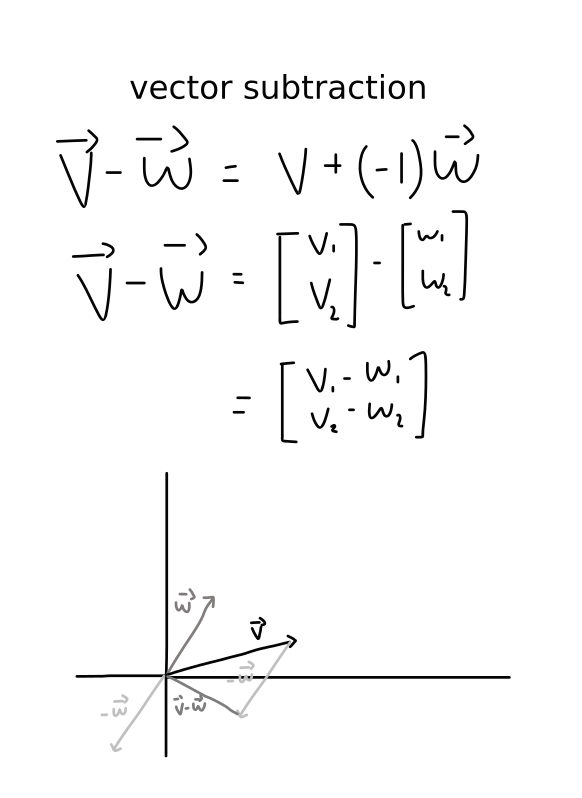 vector subtraction
v⃗ - w⃗ = v + (-1) w⃗
v⃗ - w⃗ = [v₁ v₂] - [w₁ w₂]
= [v₁ - w₁ v₂ - w₂]
w⃗
v⃗
-w⃗
-w⃗
v⃗-w⃗